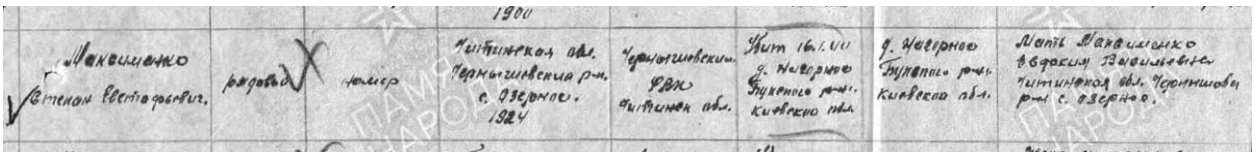 1900
Максименко
Степан Евстафьевич.
рядовой
номер
Читинская обл.
Чернышевский р-н.
с. Озерное.
1924
Чернышевским
РВК
Читинск обл.
Убит 16.1.44
д. Нагорное
Букского р-на.
Киевской обл.
д. Нагорное
Букского р-на
Киевской обл.
Мать Максименко
Евдокия Васильевна
Читинская обл. Чернышевс
р-н с. Озерное.
ПАМЯ
НАРОД
ПАМЯТ
НАРОД